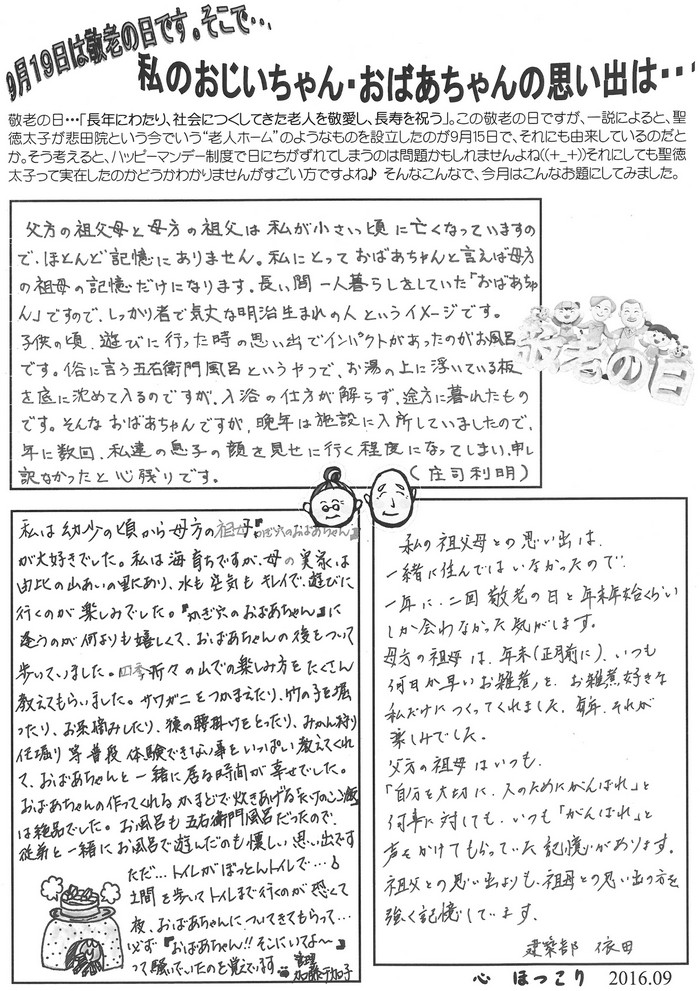 9月19日は敬老の日です。そこで…
私のおじいちゃん・おばあちゃんの思い出は・・・
敬老の日…「長年にわたり、社会につくしてきた老人を敬愛し、長寿を祝う」。この敬老の日ですが、一説によると、聖
徳太子が悲田院という今でいう“老人ホーム”のようなものを設立したのが9月15日で、それにも由来しているのだと
か。そう考えると、ハッピーマンデー制度で日にちがずれてしまうのは問題かもしれませんよね((+_+))それにしても聖徳
太子って実在したのかどうかわかりませんがすごい方ですよね♪ そんなこんなで、今月はこんなお題にしてみました。
父方の祖父母と母方の祖父は私が小さい頃に亡くなっていますの
で、ほとんど記憶にありません。私にとっておばあちゃんと言えば母方
の祖母の記憶だけになります。長い間一人暮らしをしていた「おばあちゃ
ん」ですので、しっかり者で気丈な明治生まれの人というイメージです。
子供の頃、遊びに行った時の思い出でインパクトがあったのがお風呂
です。俗に言う五右衛門風呂というやつで、お湯の上に浮いている板
を底に沈めて入るのですが、入浴の仕方が解らず、途方に暮れたもの
です。そんなおばあちゃんですが、晩年は施設に入所していましたので、
年に数回、私達の息子の顔を見せに行く程度になってしまい、申し
訳なかったと心残りです。 (庄司利明)
敬老の日
私は幼少の頃から母方の祖母『かぎ穴のおばあちゃん』
が大好きでした。私は海育ちですが、母の実家は
由比の山あいの里にあり、水も空気もキレイで、遊びに
行くのが楽しみでした。『かぎ穴のおばあちゃん』に
逢うのが何よりも嬉しくて、おばあちゃんの後をついて
歩いていました。四季折々の山での楽しみ方をたくさん
教えてもらいました。サワガニをつかまえたり、竹の子を堀
ったり、お茶摘みしたり、猿の腰掛けをとったり、みかん狩り
任堀り等普段体験できない事をいっぱい教えてくれ
て、おばあちゃんと一緒に居る時間が幸せでした。
おばあちゃんの作ってくれるかまどで炊きあげるたけのこご飯
は絶品でした。お風呂も五右衛門風呂だったので、
従弟と一緒にお風呂で遊んだのも懐しい思い出です
ただ…トイレがぼっとんトイレで…
土間を歩いてトイレまで行くのが恐くて
夜、おばあちゃんについてきてもらって…
必ず『おばあちゃん!!そこにいてよ〜』
って騒いでいたのを覚えています。
管理 加藤
私の祖父母との思い出は、
一緒に住んではいなかったので、
一年に、二回敬老の日と年末年始くらい
しか会わなかった気がします。
母方の祖母は、年末(正月前に)、いつも
何日か早いお雑煮を、お雑煮好きな
私だけにつくってくれました。毎年、それが
楽しみでした。
父方の祖母はいつも、
「自分を大切に、人のためにがんばれ」と
何事に対しても、いつも「がんばれ」と
声をかけてもらっていた記憶があります。
祖父との思い出よりも、祖母との思い出の方を
強く記憶しています。
建築部 依田
心 ほっこり 2016.09